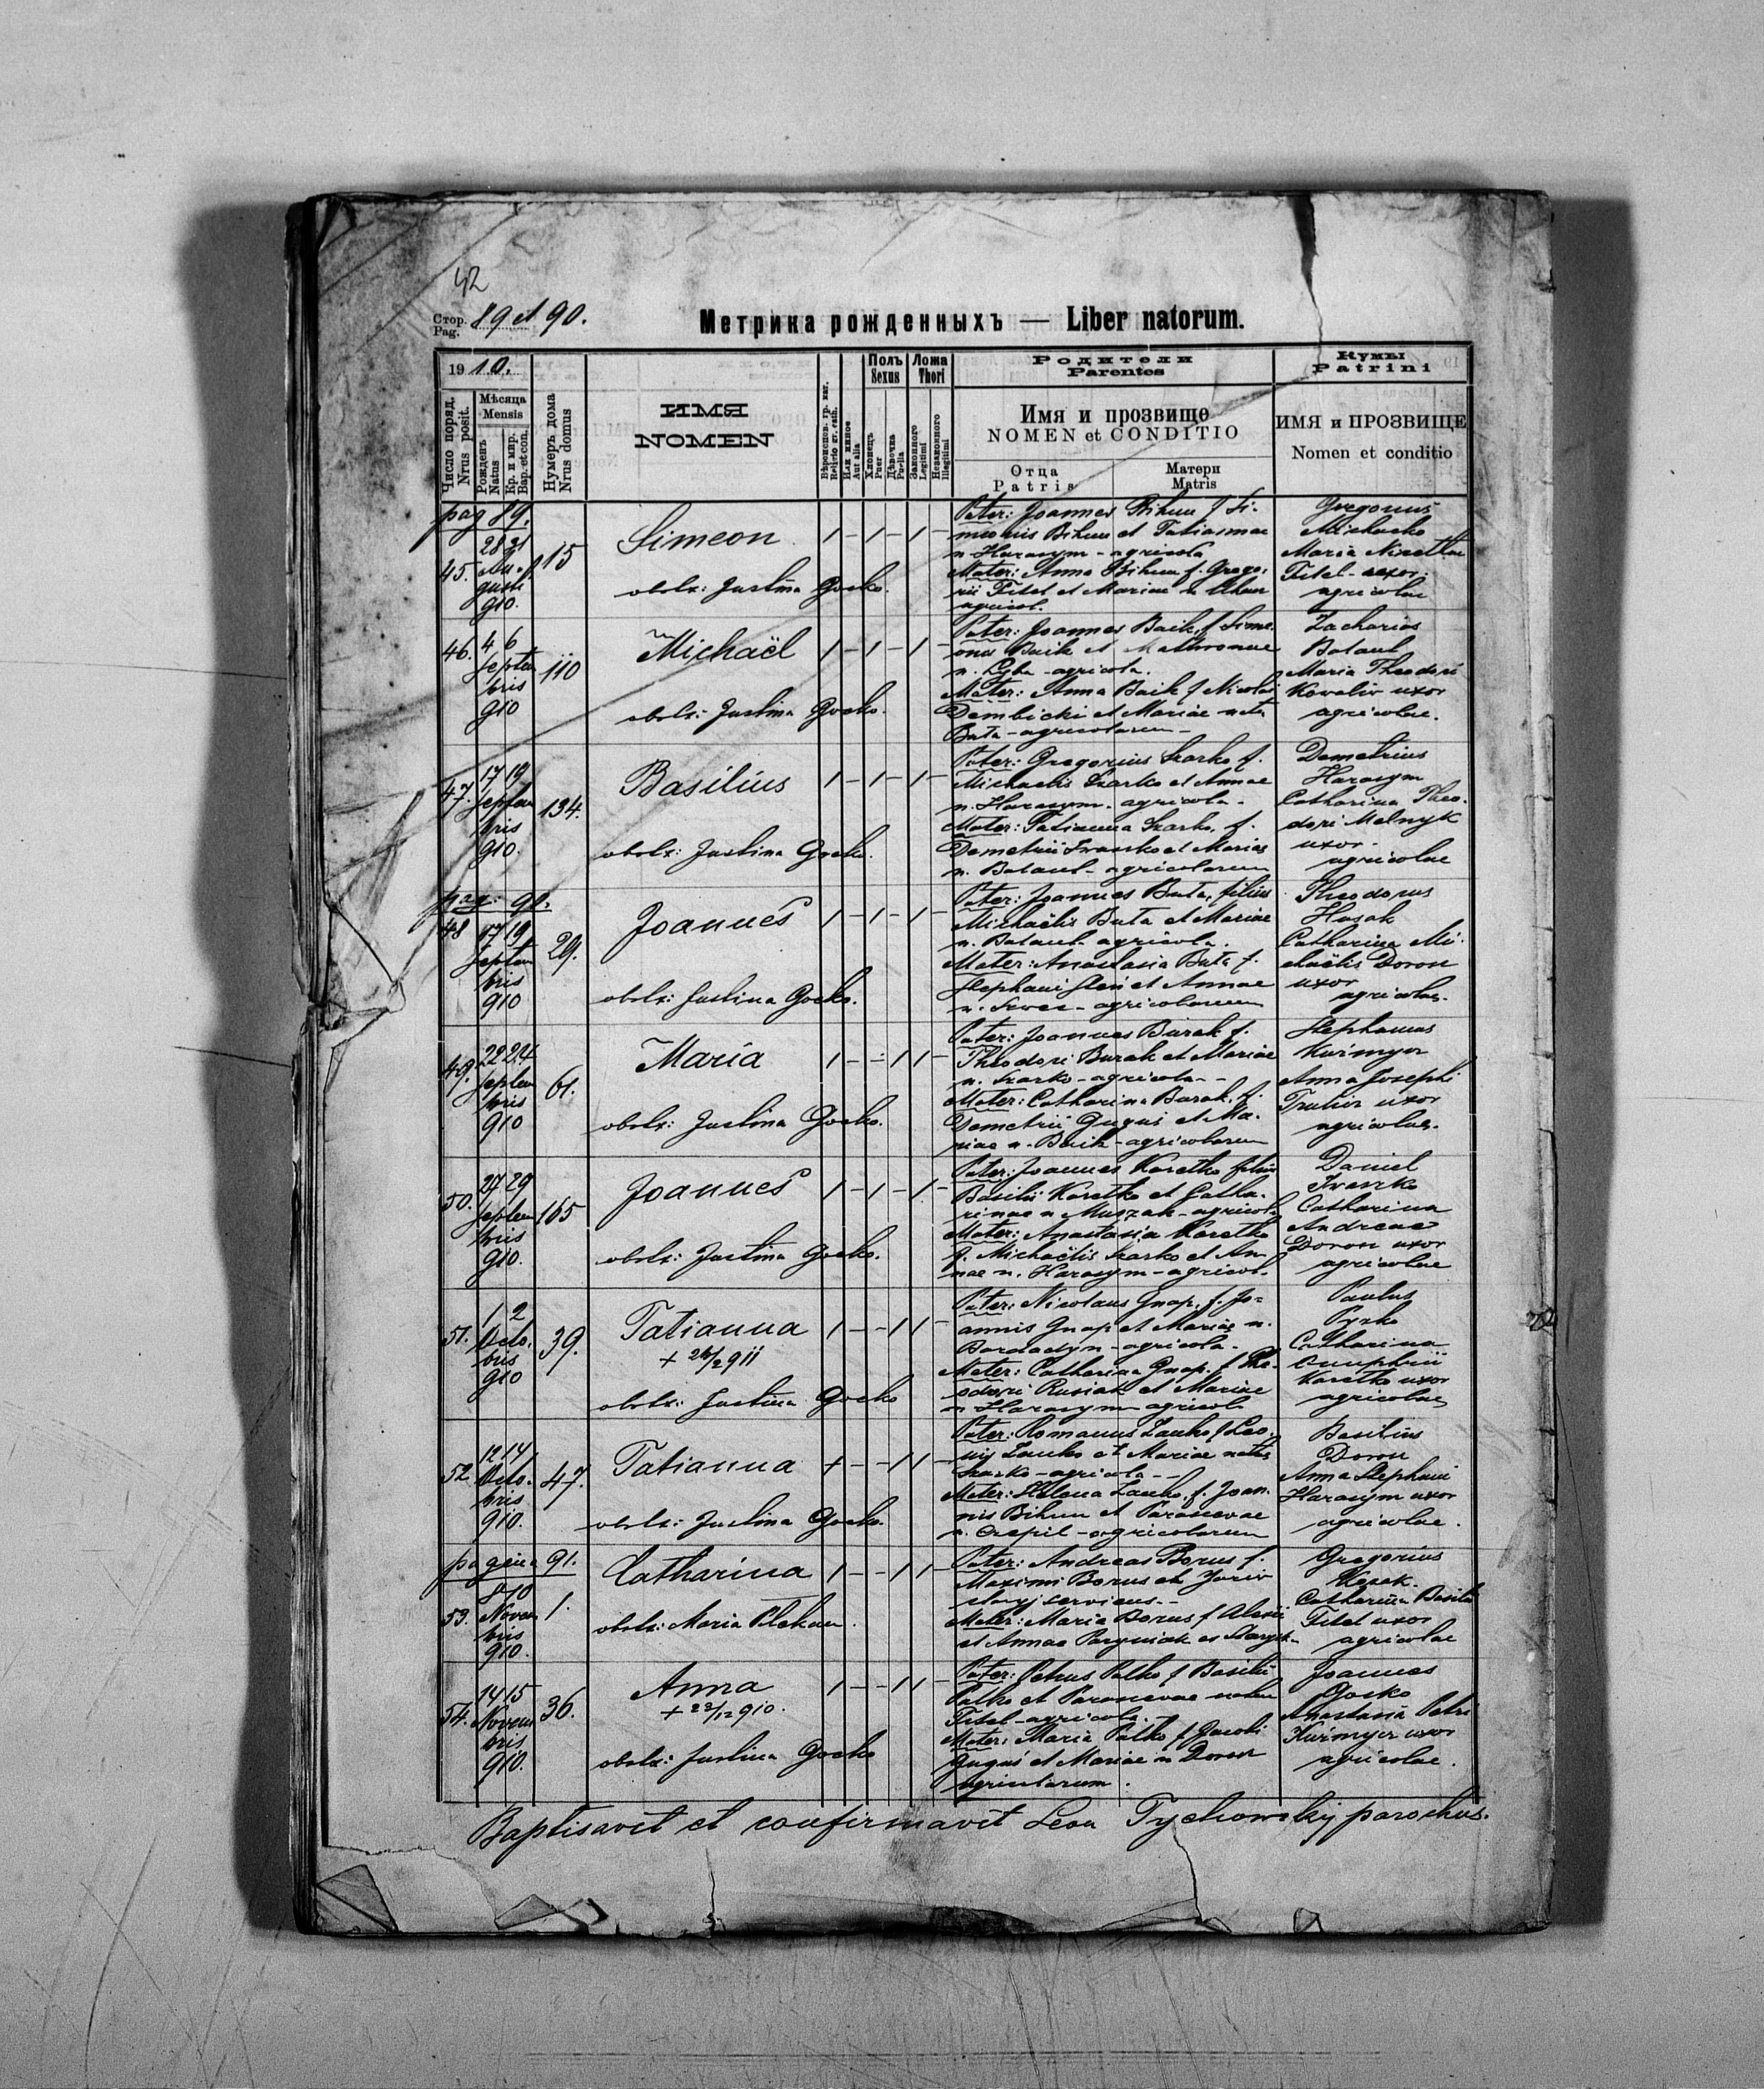 42
Стор. Pag. 89 et 90.
Метрика рожденныхъ — Liber natorum.
1910.
Число поряд. Nrus posit.
Мѣсяца Mensis
Рожденъ Natus
Кр. и мѵр. Bap. et con.
Нумеръ дома Nrus domus
ИМЯ
NOMEN
Вѣроиспов. гр. кат. Religio gr. cath.
Или инное Aut alia
Полъ Sexus
Хлопецъ Puer
Дѣвочка Puella
Ложа Thori
Законного Legitimi
Незаконного Illegitimi
Родители
Parentes
Имя и прозвище
NOMEN et CONDITIO
Отца Patris
Матери Matris
Кумы
Patrini
ИМЯ и ПРОЗВИЩЕ
Nomen et conditio
pag 89.
45.
28 31
Au-
gusti
910.
115
Simeon
obstx: Justina Gocko.
Pater: Joannes Bihun f. Si-
meonis Bihun et Tatiannae
n. Harasym - agricola
Mater: Anna Bihun f. Grego-
rii Fitel et Mariae n.
agricol.
Gregorius
Michacko
Maria
Fitel - uxor
agricolae
46.
4 6
Septem
bris
910
110
Michaël
obstx: Justina Gocko.
Pater: Joannes Baik, f. Sime-
onis Baik et Matronae
n. Cyba - agricola.
Mater: Anna Baik f. Nicolai
Dembicki et Mariae nata
Buta - agricolarum -
Zacharias
Bataul
Maria Theodori
Kovaliv uxor
agricolae.
47.
17 19
Septem
bris
910.
134.
Basilius
obstx: Justina Gocko.
Pater: Gregorius Szarko f.
Michaelis Szarko et Annae
n. Harasym - agricola -
Mater: Tatianna Szarko, f.
Demetrii Iwasko et Mariae
n. Bataul - agricolarum
Demetrius
Harasym
Catharina Theo-
dori Melnyk
uxor
agricolae
pag: 90.
48
17 19
Septem
bris
910
29.
Joannes
obstx: Justina Gocko.
Pater: Joannes Buta, filius
Michaëlis Buta et Mariae
n. Bataul - agricola.
Mater: Anastasia Buta f.
Stephani Slen et Annae
n. Szwec - agricolarum
Theodorus
Husak
Catharina Mi-
chaëlis Doron
uxor
agricolae.
49.
22 24
Septem
bris
910
61.
Maria
obstx: Justina Gocko.
Pater: Joannes Burak f.
Theodori Burak et Mariae
n. Szarko - agricola -
Mater: Catharina Burak, f.
Demetrii Guguś et Ma-
riae n. Baik - agricolarum
Stephanus
Kuśmyn
Anna Josephi
uxor
agricolae.
50.
27 29
Septem
bris
910.
165
Joannes
obstx: Justina Gocko.
Pater: Joannes Karetko filius
Basilii Karetko et Catha-
rinae n. Muszak - agricol.
Mater: Anastasia Karetko
f. Michaëlis Szarko et An-
nae n. Harasym - agricol.
Daniel
Iwaszko
Catharina
Andreae
Doron uxor
agricolae
51.
1 2
Octo-
bris
910
39.
Tatianna
+ 26/2 911
obstx: Justina Gocko
Pater: Nicolaus Gnap, f. Jo-
annis Gnap et Mariae n.
Bordadyn - agricola -
Mater: Catharina Gnap, f. The-
odori Rusiak et Mariae
n. Harasym agricol.
Paulus
Pyrko
Catharina
Onuphrii
Karetko uxor
agricolae
52.
12 14
Octo-
bris
910.
47.
Tatianna
obstx: Justina Gocko.
Pater: Romanus Lauko f. Leo-
nis Lauko et Mariae nata
Szarko - agricola - -
Mater: Helena Lauko, f. Joan-
nis Bihun et Parascevae
n. Czepil - agricolarum
Basilius
Doron
Anna Stephani
Harasym uxor
agricolae.
pagina 91.
53.
8 10
Novem
bris
910.
1.
Catharina
obstx: Maria Plekan.
Pater: Andreas Borus f.
Maximi Borus et
serviens -
Mater: Maria Borus f. Alexii
et Annae
Gregorius
Husak.
Catharina Basilii
Fitel uxor
agricolae
54.
14 15
Novem
bris
910.
36.
Anna
+ 23/12 910.
obstx: Justina Gocko
Pater: Petrus Palko f. Basilii
Palko et Parascevae natae
Fitel - agricola. -
Mater: Maria Palko f. Jacobi
Guguś et Mariae n. Doron
agricolarum.
Joannes
Gocko
Anastasia Petri
Kuśmyn uxor
agricolae.
Baptisavit et confirmavit Leon Tychowskij parochus.